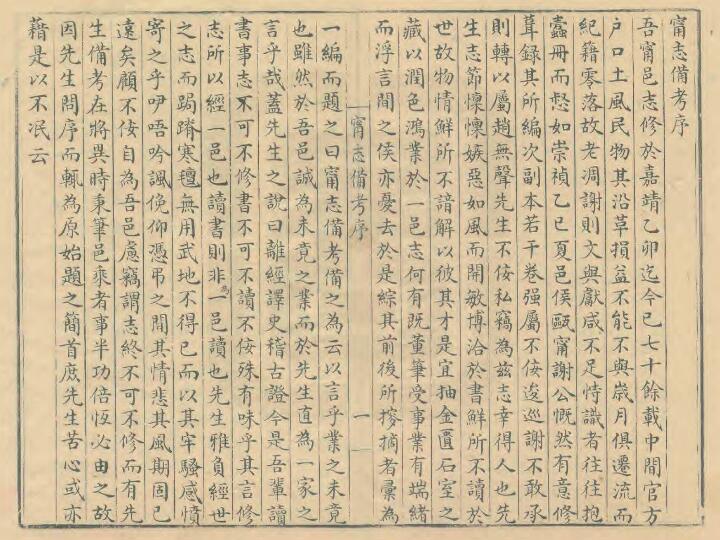 甯志備考序
吾甯邑志修於嘉靖乙卯迄今已七十餘載中間官方
户口土風民物其沿革損益不能不與歲月俱遷流而
紀籍零落故老凋謝則文與獻咸不足恃識者往往抱
蠹冊而慭如崇禎乙巳夏邑侯甌甯謝公慨然有意修
葺録其所編次副本若干卷强屬不佞逡巡謝不敢承
則轉以屬趙無聲先生不佞私竊為兹志幸得人也先
生志節懍懍嫉惡如風而開敏博洽於書鮮所不讀於
世故物情鮮所不諳解以彼其才是宜抽金匱石室之
藏以潤色鴻業於一邑志何有既董筆受事業有端緒
而浮言間之侯亦憂去於是綜其前後所搜摘者彙為
甯志備考序
一
一編而題之曰甯志備考備之為云以言乎業之未竟
也雖然於吾邑誠為未竟之業而於先生直為一家之
言乎哉蓋先生之說曰離經譯史稽古證今是吾輩讀
書事志不可不修書不可不讀不佞殊有味乎其言修
志所以經一邑也讀書則非為一邑讀也先生雅負經世
之志而跼蹐寒氊無用武地不得已而以其牢騷感憤
寄之乎吚唔吟諷俛仰憑弔之間其情悲其風期固已
遠矣顧不佞自為吾邑慮竊謂志終不可不修而有先
生備考在將異時秉筆邑乘者事半功倍恆必由之故
因先生問序而輒為原始題之簡首庶先生苦心或亦
藉是以不泯云